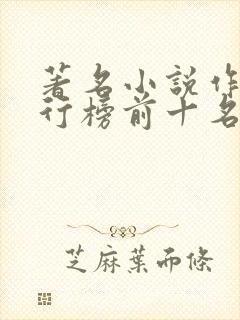 著名小說作
行榜前十名
芝麻葉而條